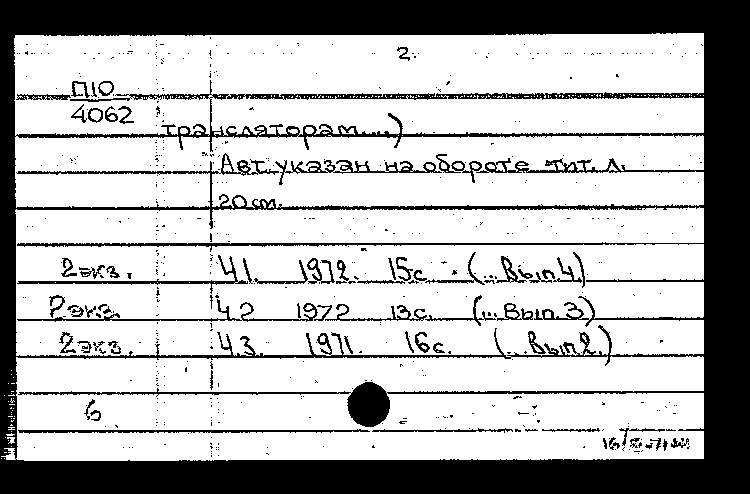 2.
П10
4062
трансляторам....)
Авт. указан на обороте тит. л.
20 см.
2экз. Ч.1. 1972. 15с. (...Вып.4.)
2экз. Ч.2 1972 13с. (...Вып.3)
2экз. Ч.3. 1971. 16с. (...Вып.2.)
6